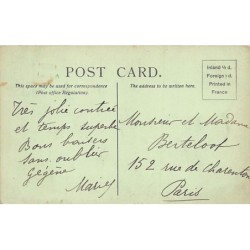 POST CARD.
This space may be used for correspondence
(Post office Regulations).
The address to be written here.
Inland ½ d.
Foreign 1 d.
Printed in
France
Très jolie contrée
et temps superbe
Bons baisers
sans oublier
Gégène
Marie
Monsieur et Madame
Berteloot
152 rue de Charenton
Paris